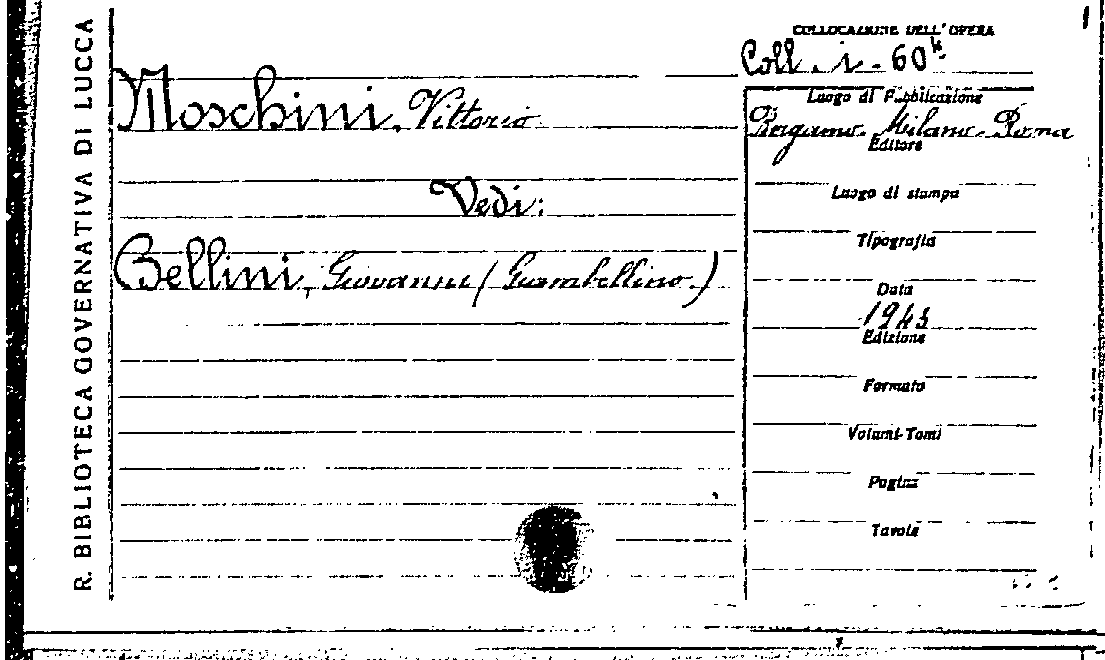 R. BIBLIOTECA GOVERNATIVA DI LUCCA
COLLOCAZIONE DELL'OPERA
Coll. 1. 60
Moschini, Vittorio
Vedi:
Bellini, Giovanni (Giambellino.)
Luogo di Pubblicazione
Bergamo. Milano. Roma
Editore
Luogo di stampa
Tipografia
Data
1943
Edizione
Formato
Volumi-Tomi
Pagine
Tavole